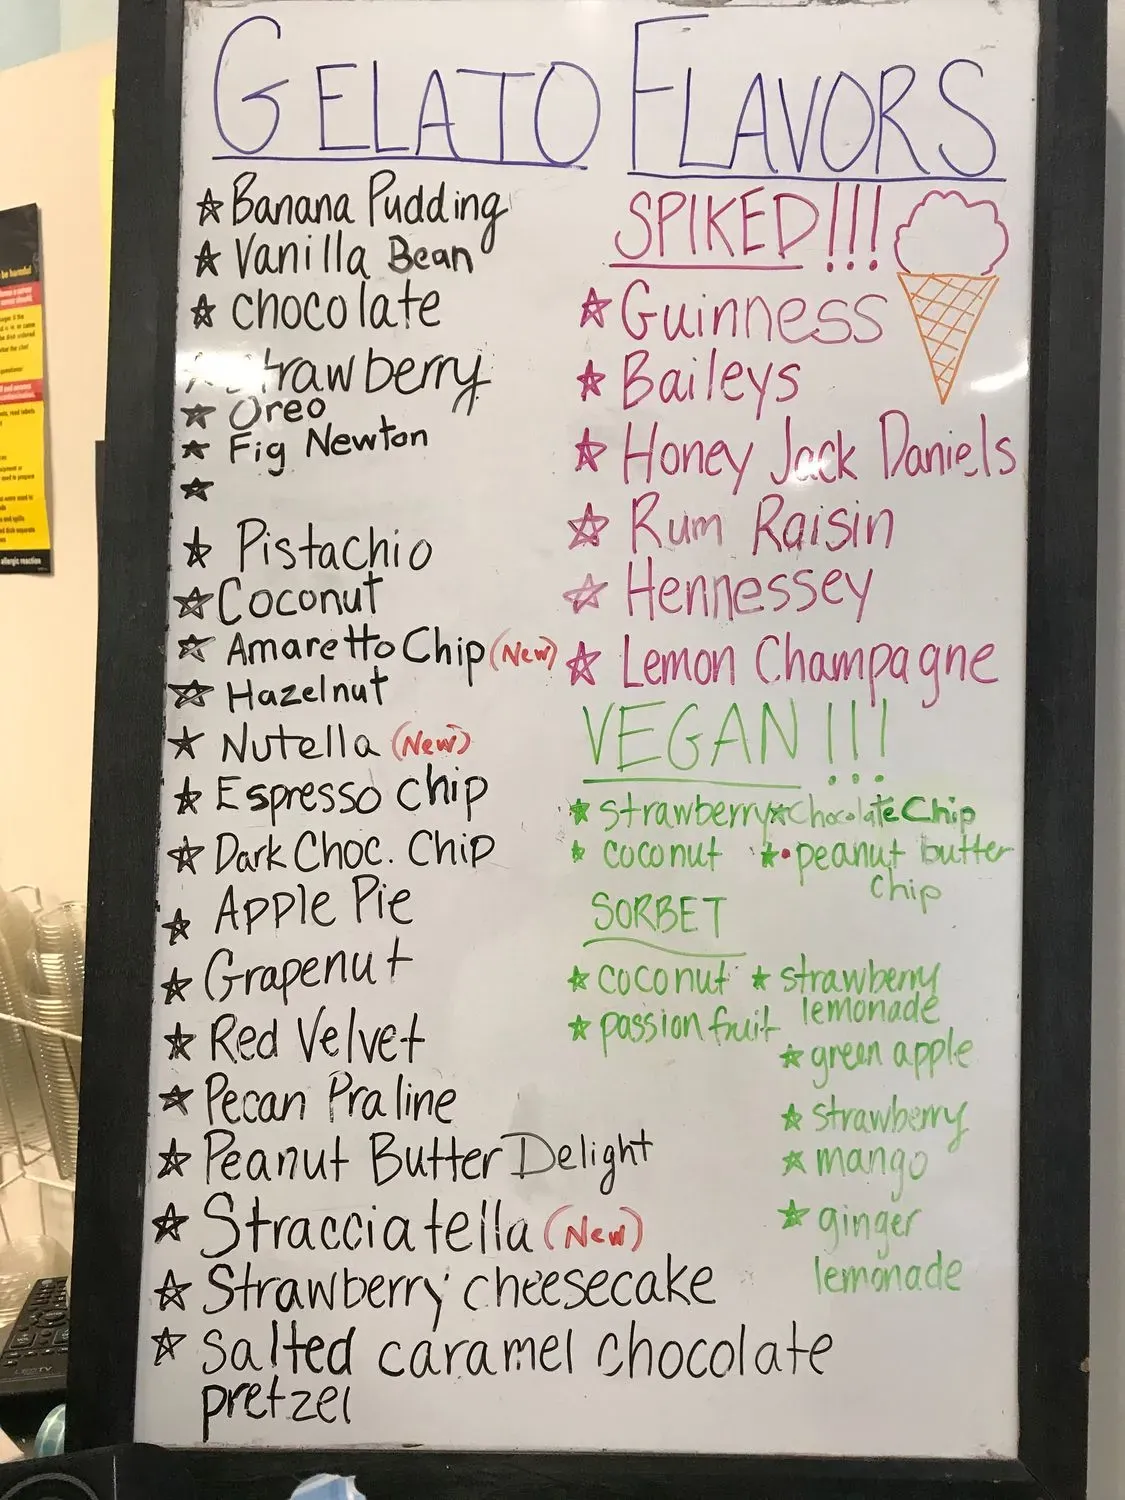 GELATO FLAVORS
☆ Banana Pudding
☆ Vanilla Bean
☆ chocolate
☆ Strawberry
☆ Oreo
☆ Fig Newton
☆
☆ Pistachio
☆ Coconut
☆ Amaretto Chip (New)
☆ Hazelnut
☆ Nutella (New)
☆ Espresso chip
☆ Dark Choc. Chip
☆ Apple Pie
☆ Grapenut
☆ Red Velvet
☆ Pecan Praline
☆ Peanut Butter Delight
☆ Stracciatella (New)
☆ Strawberry cheesecake
☆ Salted caramel chocolate
pretzel
SPIKED!!!
☆ Guinness
☆ Baileys
☆ Honey Jack Daniels
☆ Rum Raisin
☆ Hennessey
☆ Lemon Champagne
VEGAN!!!
★ strawberry ★ Chocolate Chip
★ coconut ★ peanut butter
chip
SORBET
★ coconut ★ strawberry
lemonade
★ passion fruit
★ green apple
★ strawberry
★ mango
★ ginger
lemonade
be harmful
allergic reaction